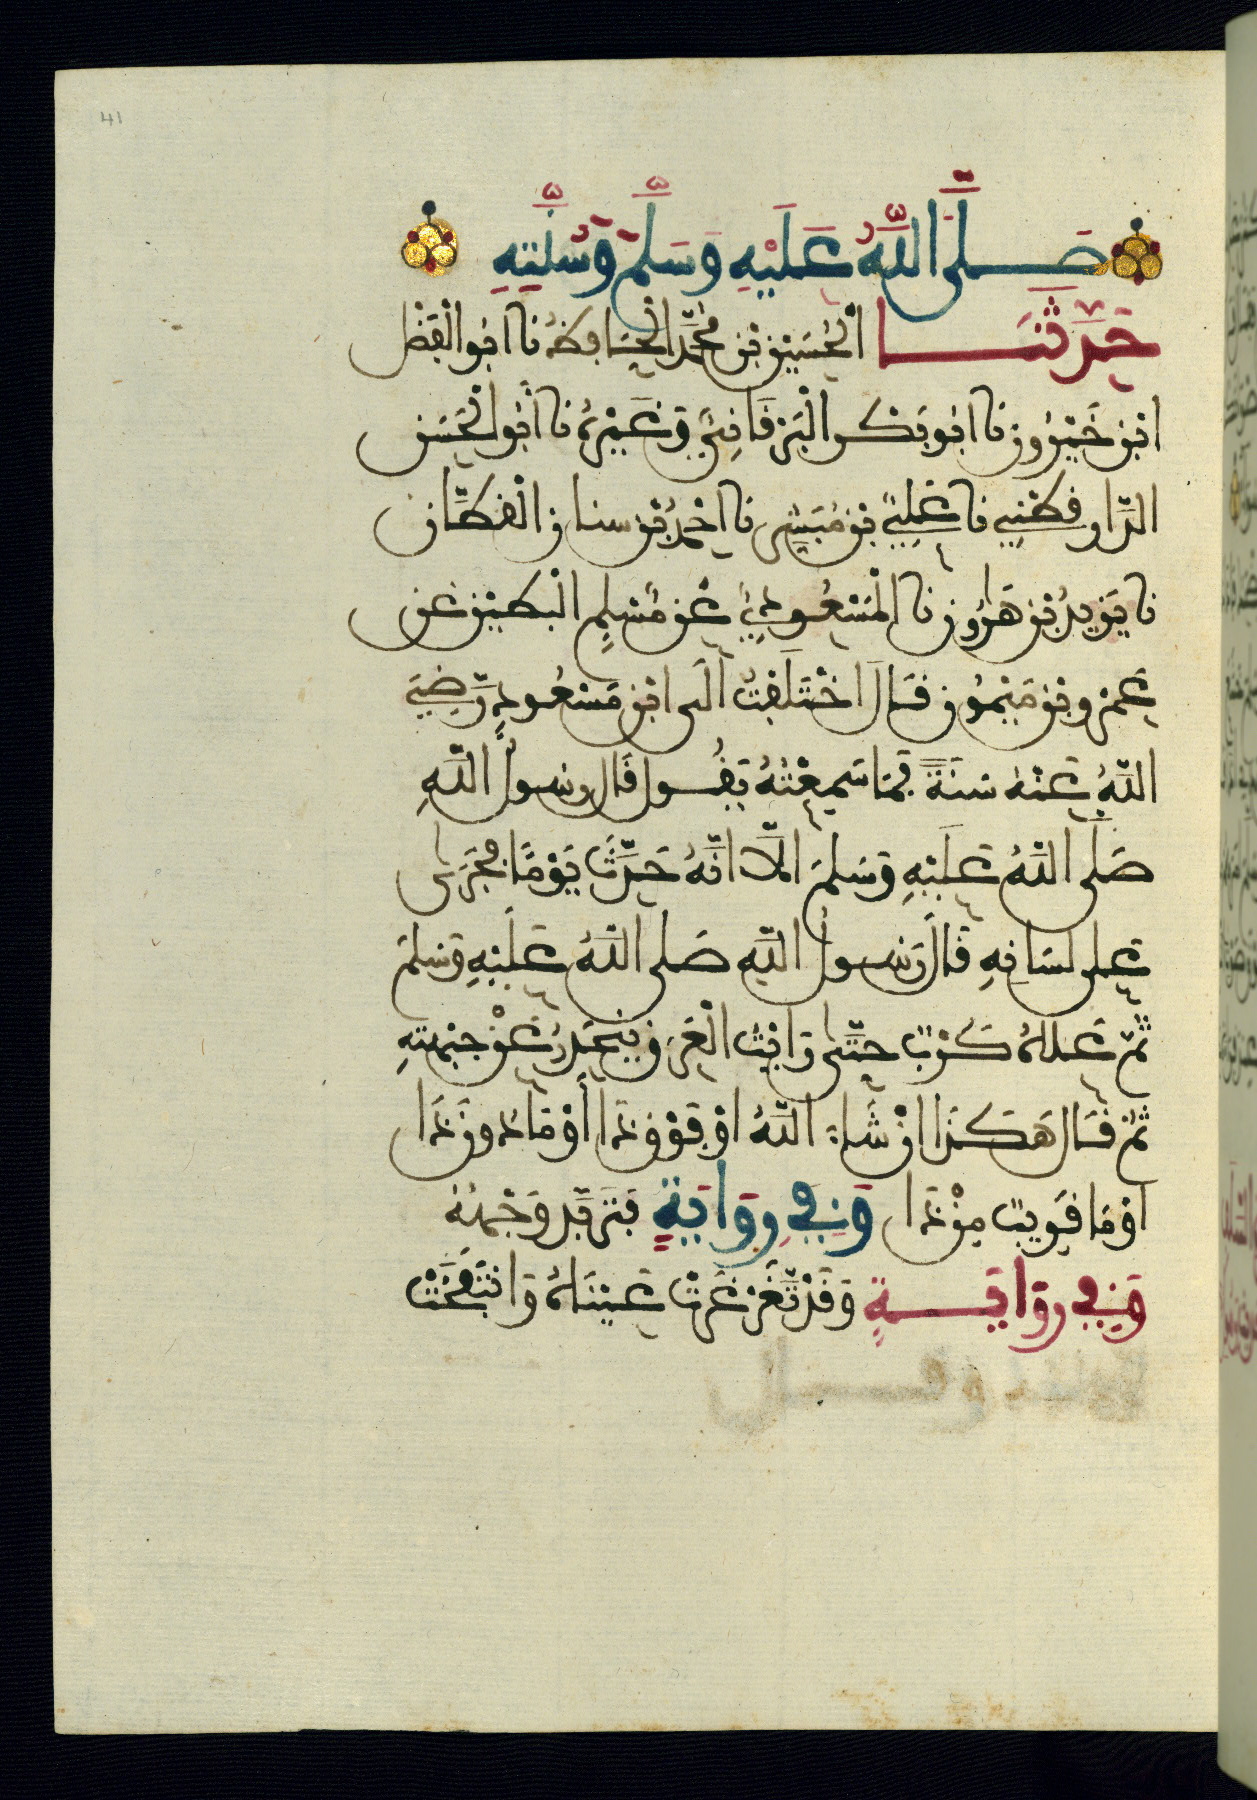 41
صَلَّى اللَّهُ عَلَيْهِ وَسَلَّمَ وَسُنَّتِهِ
حَدَّثَنَا الْحُسَيْنُ بْنُ مُحَمَّدٍ الْحَافِظُ نا ابُو الْفَضْلِ
ابْنُ خَيْرُونَ نا ابُو بَكْر الْبَرْقَانِيُّ وَغَيْرُهُ نا أَبُو الْحَسَنِ
الدَّارقُطْنِي نا عَلِيُّ بْنُ مُبَشِّرٍ نا احْمَدُ بْنُ سنان الْقَطَّان
نا يَزِيدُ بْنُ هَارُونَ نا الْمَسْعُودِيُّ عَنْ مُسْلِمٍ الْبَطِينِ عَن
عَمْرِو بْنِ مَيْمُونٍ قَالَ اخْتَلَفْتُ الَى ابْنِ مَسْعُودٍ رَضِيَ
اللَّهُ عَنْهُ سَنَةً فَمَا سَمِعْتُهُ يَقُول قَالَ رسولُ اللَّهِ
صَلَى اللَّهُ عَلَيْهِ وَسَلمَ الَّا انَّهُ حَدَّثَ يَوْمًا فَجَرَى
عَلى لسَانِهِ قَالَ رَسول اللَّهِ صَلى اللَّهُ عَلَيْهِ وَسَلمَ
ثُمَّ عَلاهُ كَرْبٌ حتَّى رَايْتُ الْعَرَقَ يَتَحَدَّرُ عَنْ جَبْهَتِهِ
ثُمَّ قَال هَكَذَا انْ شَاءَ اللَّهُ اوْ فَوْقَ ذَا أَوْ مَا دُونَ ذَا
اوْ مَا قَرِيبٌ مِنْ ذَا وَفِي رِوَايَةٍ فَتَرَبَّدَ وَجْهُهُ
وَفِي رِوَايَةٍ وَقَدْ تَغَرْغَرَتْ عَيْنَاهُ وَانْتَفَخَتْ